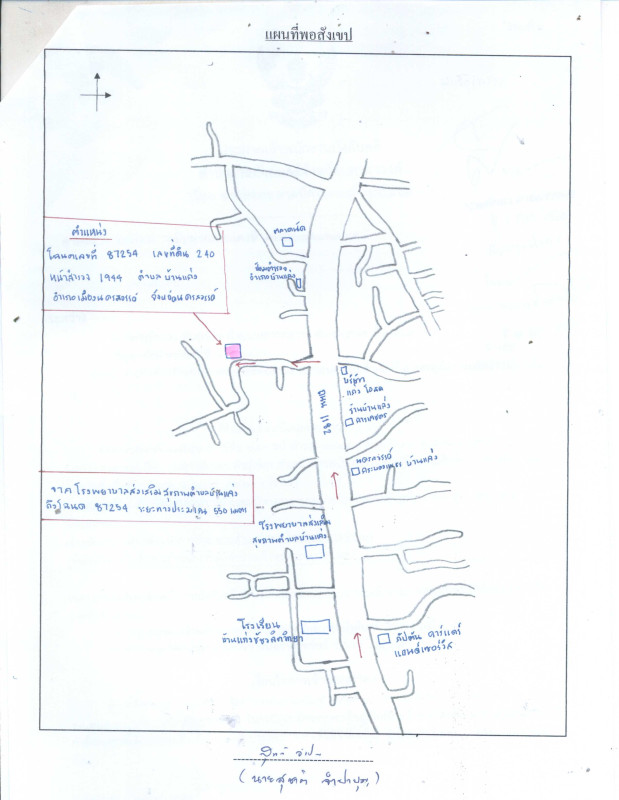 แผนที่พอสังเขป
ตำแหน่ง
โฉนดเลขที่ 87254 เลขที่ดิน 240
หน้าสำรวจ 1944 ตำบลบ้านแก่ง
อำเภอเมืองนครสวรรค์ จังหวัดนครสวรรค์
ตลาดนัด
บ้านแก่ง
ถนน 1182
ร้านบ้านแก่ง
การเกษตร
นครสวรรค์
บ้านแก่ง
จากโรงพยาบาลส่งเสริมสุขภาพตำบลบ้านแก่ง
ถึงโฉนด 87254 ระยะทางประมาณ 550 เมตร
โรงพยาบาลส่งเสริม
สุขภาพตำบลบ้านแก่ง
โรงเรียน
บ้านแก่งชัชวลิตวิทยา
กัปตัน คาร์แคร์
แอนด์เซอร์วิส